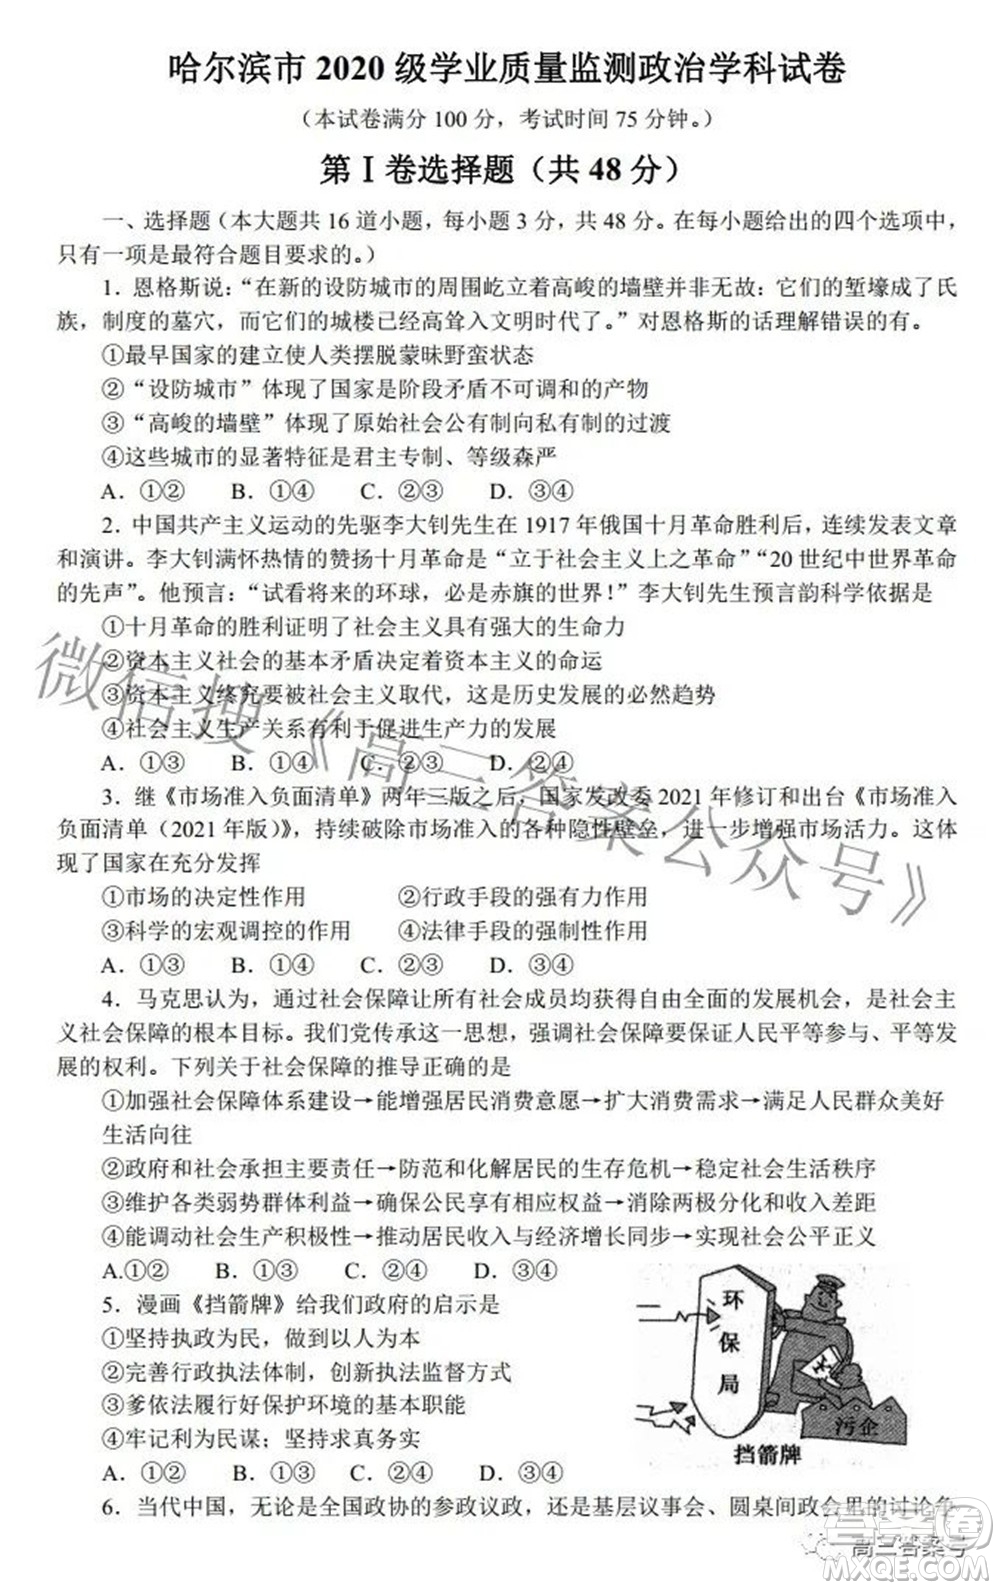 哈尔滨市 2020 级学业质量监测政治学科试卷
（本试卷满分 100 分，考试时间 75 分钟。）
第Ⅰ卷选择题（共 48 分）
一、选择题（本大题共 16 道小题，每小题 3 分，共 48 分。在每小题给出的四个选项中，
只有一项是最符合题目要求的。）
1．恩格斯说：“在新的设防城市的周围屹立着高峻的墙壁并非无故：它们的堑壕成了氏
族，制度的墓穴，而它们的城楼已经高耸入文明时代了。”对恩格斯的话理解错误的有。
①最早国家的建立使人类摆脱蒙昧野蛮状态
②“设防城市”体现了国家是阶段矛盾不可调和的产物
③“高峻的墙壁”体现了原始社会公有制向私有制的过渡
④这些城市的显著特征是君主专制、等级森严
A．①② B．①④ C．②③ D．③④
2．中国共产主义运动的先驱李大钊先生在 1917 年俄国十月革命胜利后，连续发表文章
和演讲。李大钊满怀热情的赞扬十月革命是“立于社会主义上之革命”“20 世纪中世界革命
的先声”。他预言：“试看将来的环球，必是赤旗的世界！”李大钊先生预言韵科学依据是
①十月革命的胜利证明了社会主义具有强大的生命力
②资本主义社会的基本矛盾决定着资本主义的命运
③资本主义终究要被社会主义取代，这是历史发展的必然趋势
④社会主义生产关系有利于促进生产力的发展
A．①③ B．①④ C．②③ D．②④
3．继《市场准入负面清单》两年三版之后，国家发改委 2021 年修订和出台《市场准入
负面清单（2021 年版）》，持续破除市场准入的各种隐性壁垒，进一步增强市场活力。这体
现了国家在充分发挥
①市场的决定性作用 ②行政手段的强有力作用
③科学的宏观调控的作用 ④法律手段的强制性作用
A．①③ B．①④ C．②③ D．②④
4．马克思认为，通过社会保障让所有社会成员均获得自由全面的发展机会，是社会主
义社会保障的根本目标。我们党传承这一思想，强调社会保障要保证人民平等参与、平等发
展的权利。下列关于社会保障的推导正确的是
①加强社会保障体系建设→能增强居民消费意愿→扩大消费需求→满足人民群众美好
生活向往
②政府和社会承担主要责任→防范和化解居民的生存危机→稳定社会生活秩序
③维护各类弱势群体利益→确保公民享有相应权益→消除两极分化和收入差距
④能调动社会生产积极性→推动居民收入与经济增长同步→实现社会公平正义
A.①② B．①④ C．②③ D．③④
5．漫画《挡箭牌》给我们政府的启示是
①坚持执政为民，做到以人为本
②完善行政执法体制，创新执法监督方式
③爹依法履行好保护环境的基本职能
④牢记利为民谋；坚持求真务实
A．①② B．①④ C．②③ D．③④
环保局
污企
挡箭牌
6．当代中国，无论是全国政协的参政议政，还是基层议事会、圆桌间政会里的讨论争
微信搜《高三答案公众号》
高三答案号
答案圈
MXQE.COM